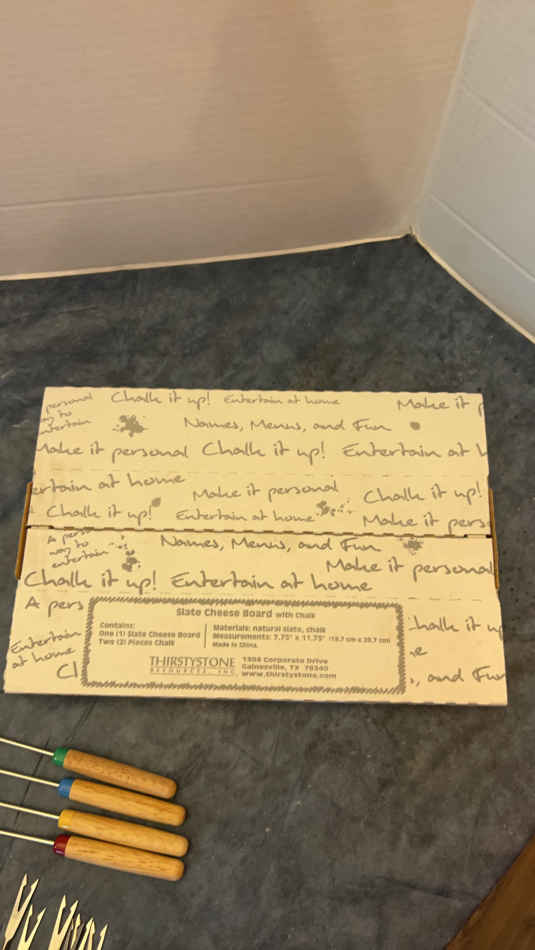 personal Chalk it up! Entertain at home Make it p
way to
entertain Names, Menus, and Fun
Make it personal Chalk it up! Entertain at h
ertain at home Make it personal Chalk it up!
Chalk it up! Entertain at home Make it pers
A pers
way to
entertain Names, Menus, and Fun Make it personal
Chalk it up! Entertain at home
A pers
Entertain
at home
Cl
Slate Cheese Board with Chalk
Contains:
One (1) Slate Cheese Board
Two (2) Pieces Chalk
Materials: natural slate, chalk
Measurements: 7.75" x 11.75" (19.7 cm x 29.7 cm)
Made in China.
THIRSTYSTONE
RESOURCES, INC.
1304 Corporate Drive
Gainesville, TX 76240
www.thirstystone.com
Chalk it up
e
s, and Fun